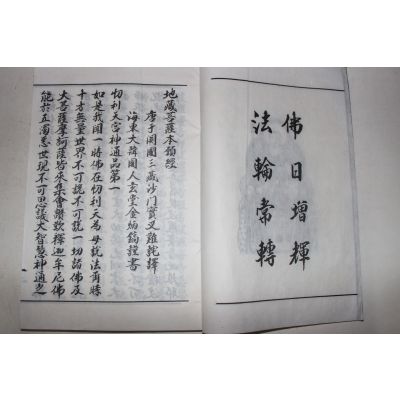 佛日增輝
法輪常轉
地藏菩薩本願經
唐于闐國三藏沙門實叉難陀譯
海東大韓國人玄堂金炳鎬謹書
忉利天宮神通品第一
如是我聞一時佛在忉利天為母說法爾時
十方無量世界不可說不可說一切諸佛及
大菩薩摩訶薩皆來集會讚歎釋迦牟尼佛
能於五濁惡世現不可思議大智慧神通之